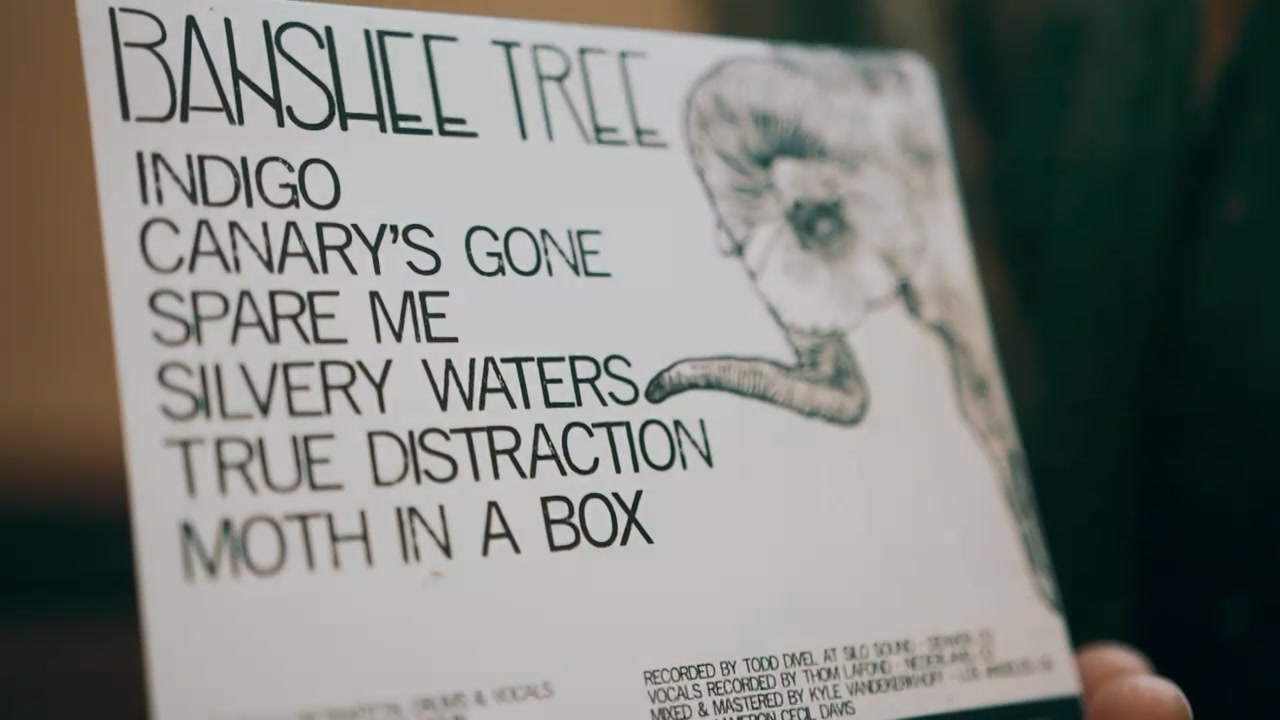 BANSHEE TREE
INDIGO
CANARY'S GONE
SPARE ME
SILVERY WATERS
TRUE DISTRACTION
MOTH IN A BOX
DRUMS & VOCALS
RECORDED BY TODD DIVEL AT SILO SOUND - DENVER,
VOCALS RECORDED BY THOM LAFOND - NEDERLAND,
MIXED & MASTERED BY KYLE VANDEKERKHOFF - LOS ANGELES, CA
CAMERON CECIL DAVIS